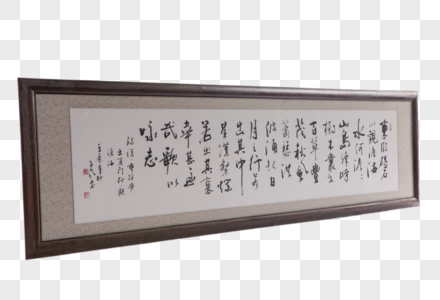 東臨碣石
以觀滄海
水何澹澹
山島竦峙
樹木叢生
百草豐
茂秋風
蕭瑟洪
波湧起日
月之行若
出其中
星漢燦爛
若出其裏
幸甚至
哉歌以
詠志